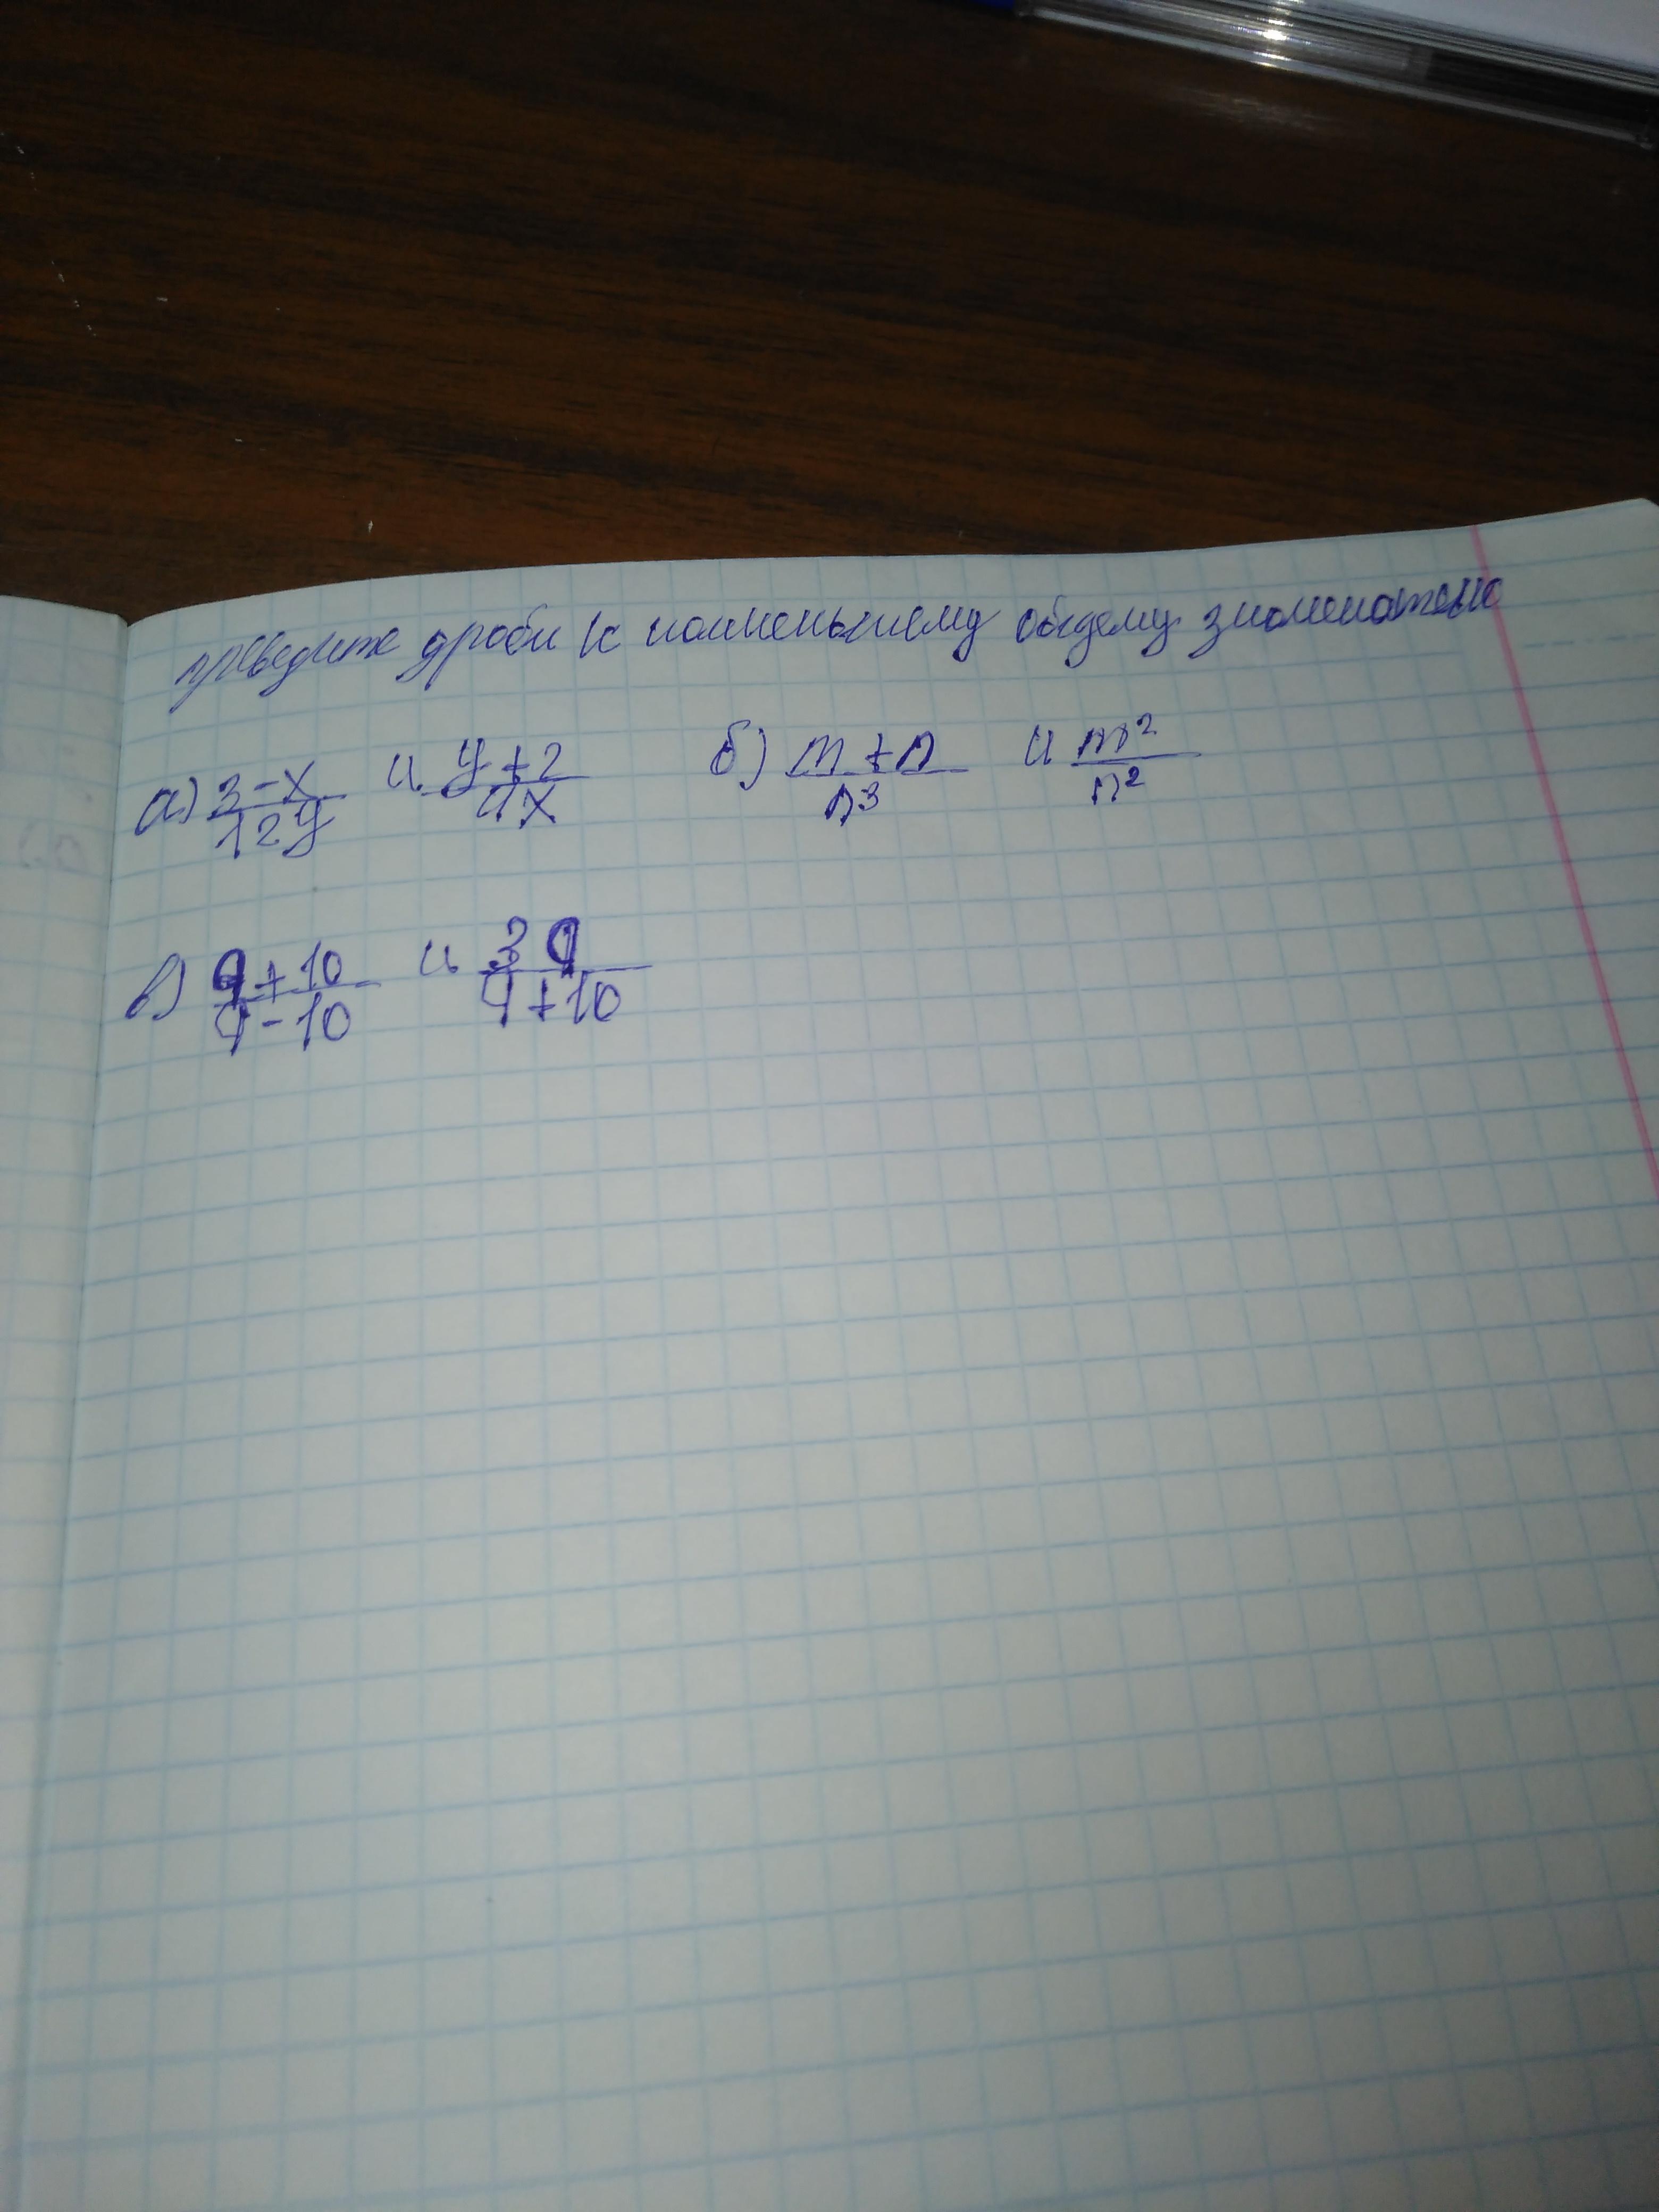 приведите дроби к наименьшему общему знаменателю
а) 3-x/12y и y+2/4x б) m+n/n³ и m²/n²
в) q+10/q-10 и 3q/q+10